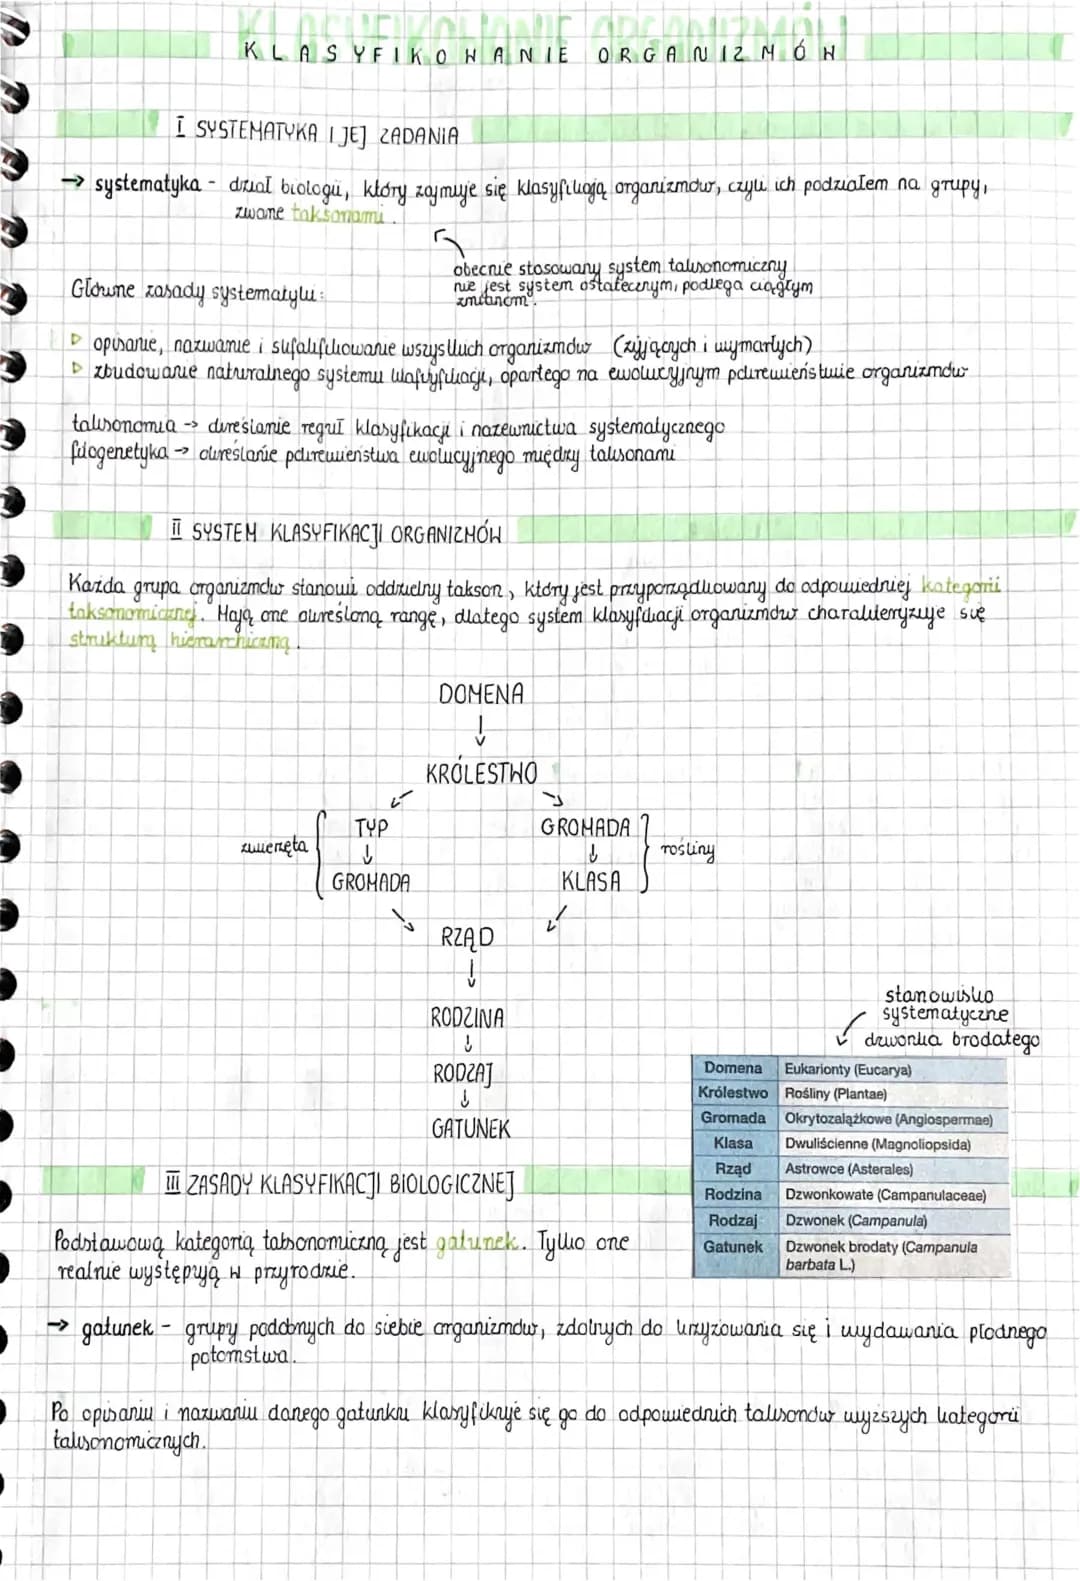 KLASYFIKOWANIE ORGANIZMÓW
I SYSTEMATYKA I JEJ ZADANIA
→ systematyka - dział biologii, który zajmuje się klasyfikacją organizmów, czyli ich podziałem na grupy,
zwane taksonami.
obecnie stosowany system taksonomiczny
nie jest system ostatecznym, podlega ciągłym
zmianom.
Główne zasady systematyki:
▷ opisanie, nazwanie i sklasyfikowanie wszystkich organizmów (żyjących i wymarłych)
▷ zbudowanie naturalnego systemu klasyfikacji, opartego na ewolucyjnym pokrewieństwie organizmów
taksonomia → określanie reguł klasyfikacji i nazewnictwa systematycznego
filogenetyka → określanie pokrewieństwa ewolucyjnego między taksonami
II SYSTEM KLASYFIKACJI ORGANIZMÓW
Każda grupa organizmów stanowi oddzielny takson, który jest przyporządkowany do odpowiedniej kategorii
taksonomicznej. Mają one określoną rangę, dlatego system klasyfikacji organizmów charakteryzuje się
strukturą hierarchiczną.
DOMENA
↓
KRÓLESTWO
↙ ↘
zwierzęta TYP GROMADA rośliny
↓ ↓
GROMADA KLASA
↘ ↙
RZĄD
↓
RODZINA
↓
RODZAJ
↓
GATUNEK
stanowisko
systematyczne
dzwonka brodatego
Domena Eukarionty (Eucarya)
Królestwo Rośliny (Plantae)
Gromada Okrytozalążkowe (Angiospermae)
Klasa Dwuliścienne (Magnoliopsida)
Rząd Astrowce (Asterales)
Rodzina Dzwonkowate (Campanulaceae)
Rodzaj Dzwonek (Campanula)
Gatunek Dzwonek brodaty (Campanula
barbata L.)
III ZASADY KLASYFIKACJI BIOLOGICZNEJ
Podstawową kategorią taksonomiczną jest gatunek. Tylko one
realnie występują w przyrodzie.
→ gatunek - grupy podobnych do siebie organizmów, zdolnych do krzyżowania się i wydawania płodnego
potomstwa.
Po opisaniu i nazwaniu danego gatunku klasyfikuje się go do odpowiednich taksonów wyższych kategorii
taksonomicznych.